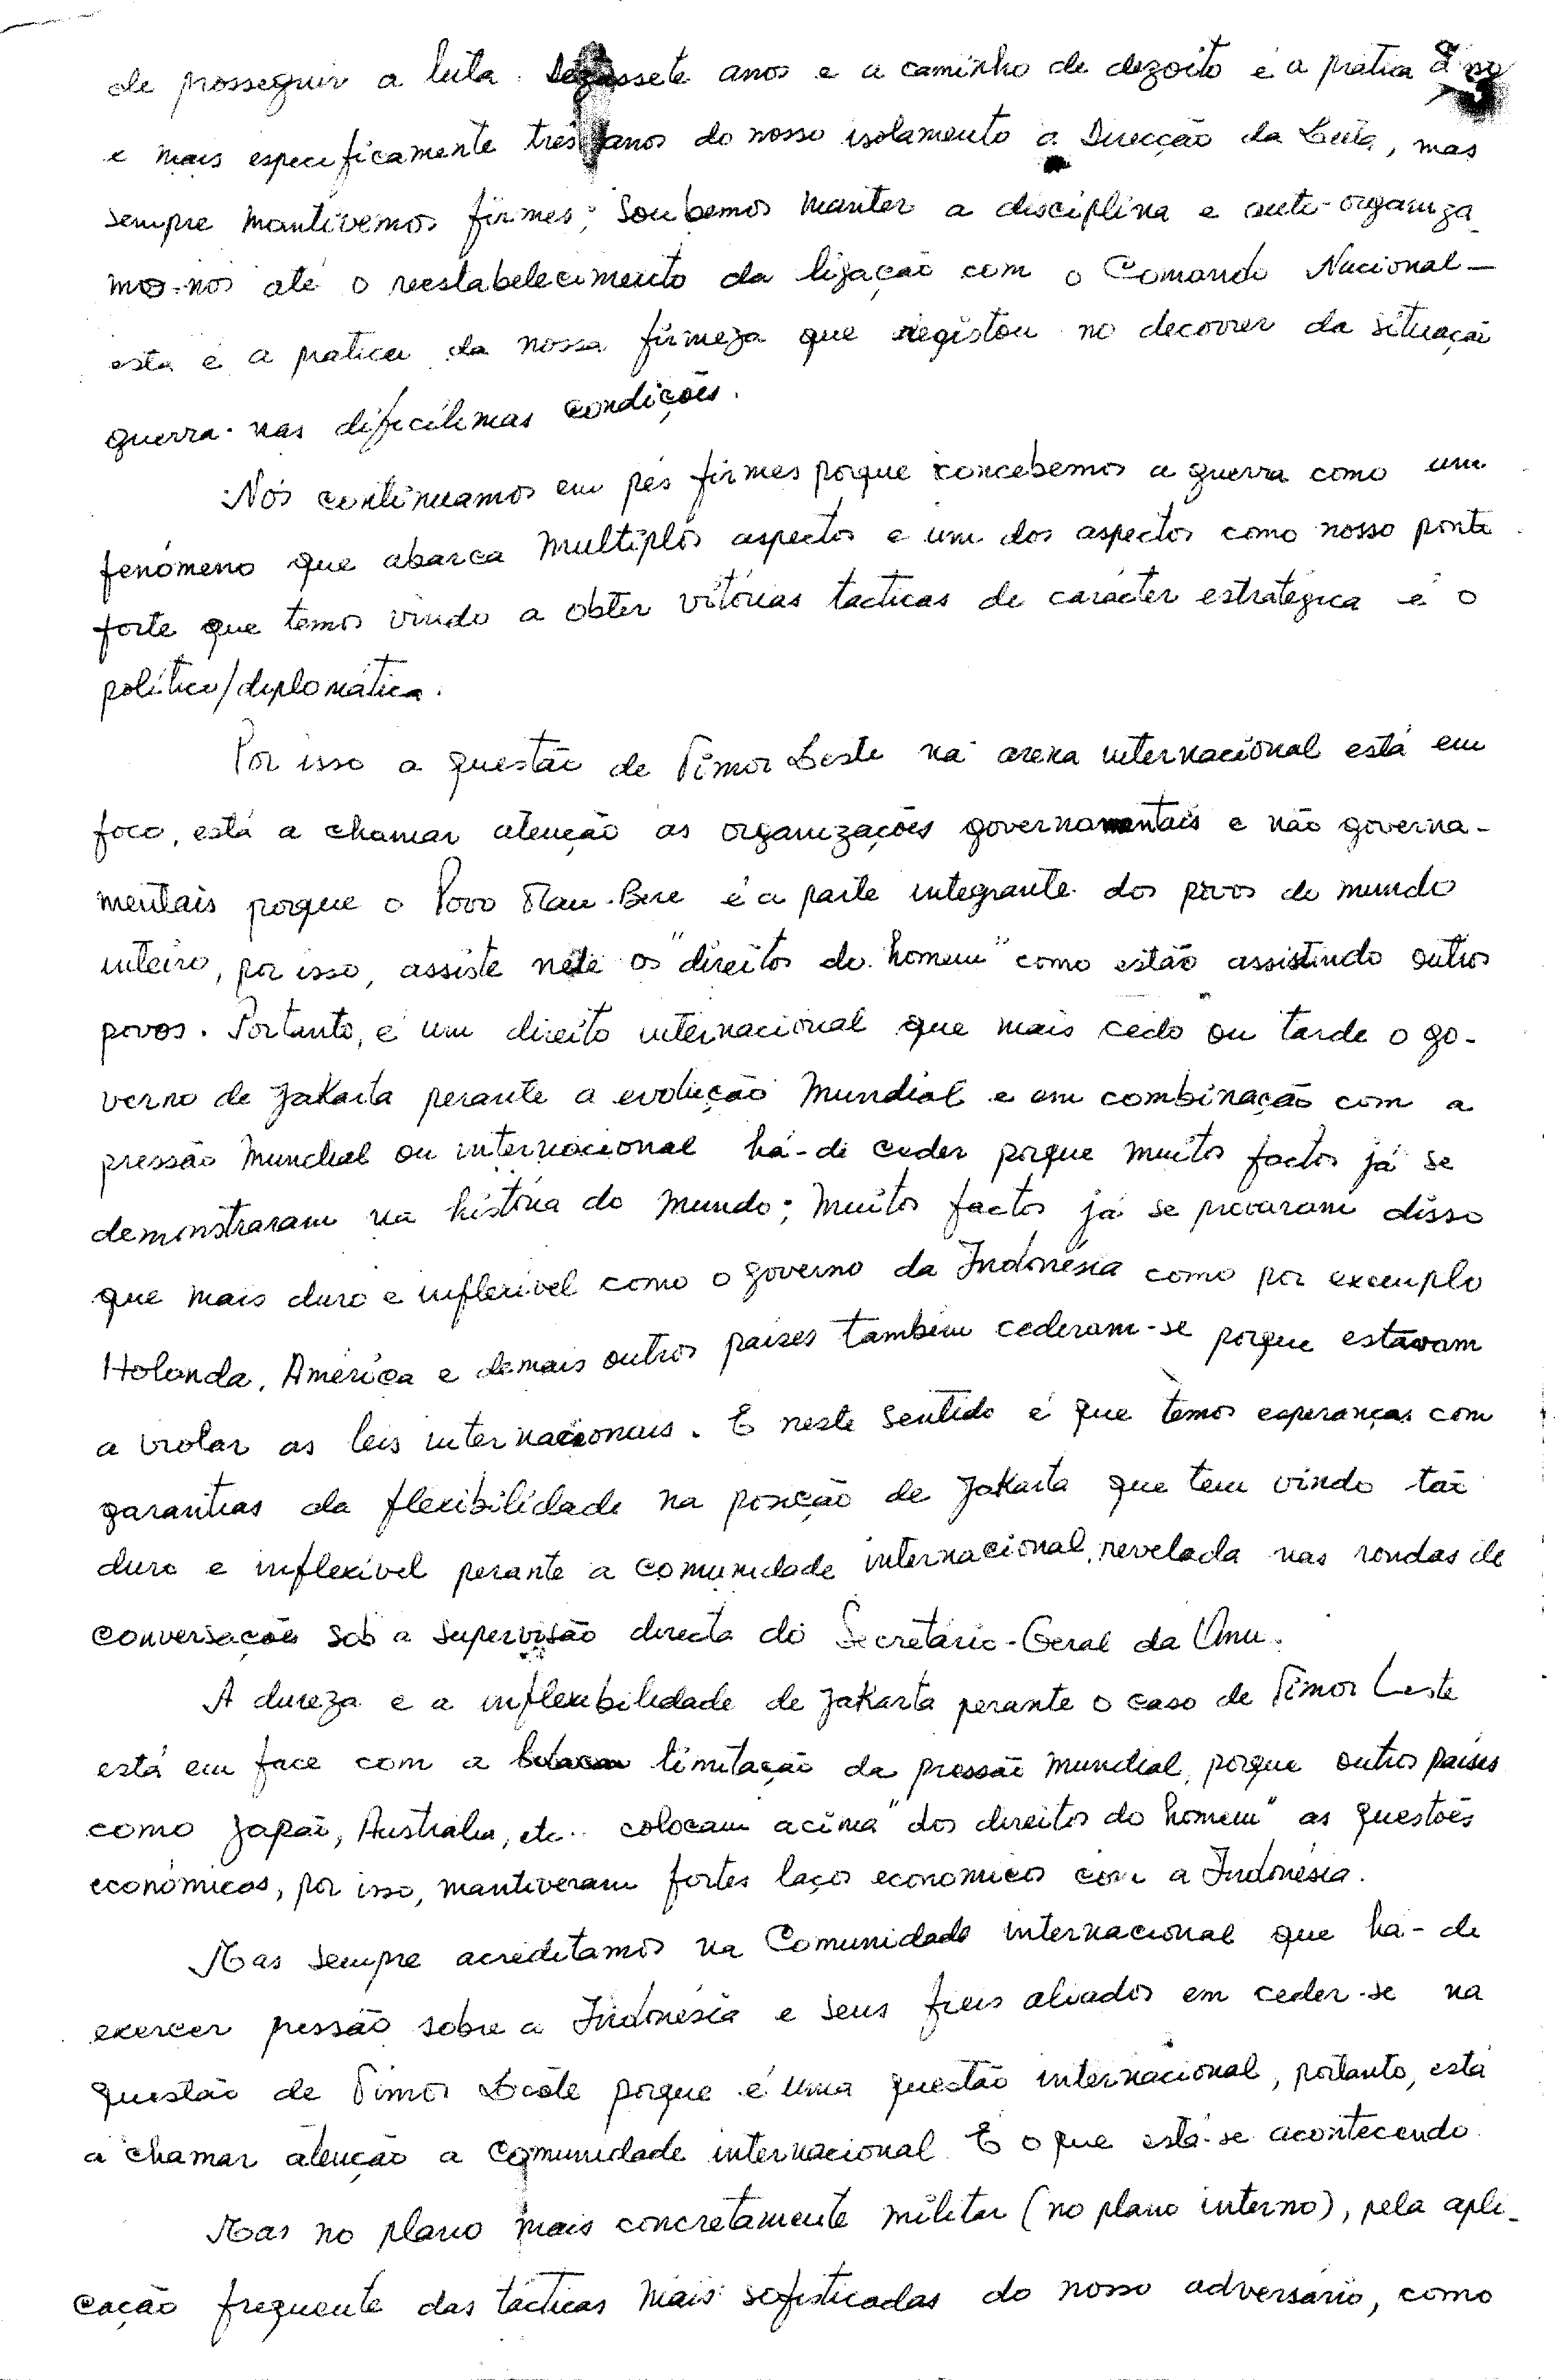 de prosseguir a luta. Dezassete anos e a caminho de dezoito é a pratica
e mais especificamente três anos do nosso isolamento a Direcção da Luta, mas
sempre mantivemos firmes; soubemos manter a disciplina e auto-organiza-
mo-nos até o reestabelecimento da ligação com o Comando Nacional-
esta é a pratica da nossa firmeza que registou no decorrer da situação
guerra nas dificilimas condições.
Nós continuamos em pés firmes porque concebemos a guerra como um
fenómeno que abarca multiplos aspectos e um dos aspectos como nosso ponto
forte que temos vindo a obter vitórias tacticas de carácter estratégica é o
politico/diplomática.
Por isso a questão de Timor Leste na arena internacional está em
foco, está a chamar atenção as organizações governamentais e não governa-
mentais porque o Povo Mau-Bere é a parte integrante dos povos do mundo
inteiro, por isso, assiste nele os "direitos do homem" como estão assistindo outros
povos. Portanto, é um direito internacional que mais cedo ou tarde o go-
verno de Jakarta perante a evolução mundial e em combinação com a
pressão mundial ou internacional há-de ceder porque muitos factos já se
demonstraram na história do mundo; muitos factos já se provaram disso
que mais duro e inflexivel como o governo da Indonésia como por exemplo
Holanda, América e demais outros países também cederam-se porque estavam
a violar as leis internacionais. E neste sentido é que temos esperanças com
garantias da flexibilidade na posição de Jakarta que tem vindo tão
duro e inflexível perante a comunidade internacional, revelada nas rondas de
conversações sob a supervisão directa do Secretário-Geral da Onu.
A dureza e a inflexibilidade de Jakarta perante o caso de Timor Leste
está em face com a limitação da pressão mundial, porque outros países
como Japão, Australia, etc.. colocam acima "dos direitos do homem" as questões
económicas, por isso, mantiveram fortes laços economicos com a Indonésia.
Mas sempre acreditamos na Comunidade internacional que há-de
exercer pressão sobre a Indonésia e seus fieis aliados em ceder-se na
questão de Timor Leste porque é uma questão internacional, portanto, está
a chamar atenção a comunidade internacional. E o que está-se acontecendo.
Mas no plano mais concretamente militar (no plano interno), pela apli-
cação frequente das tácticas mais sofisticadas do nosso adversário, como